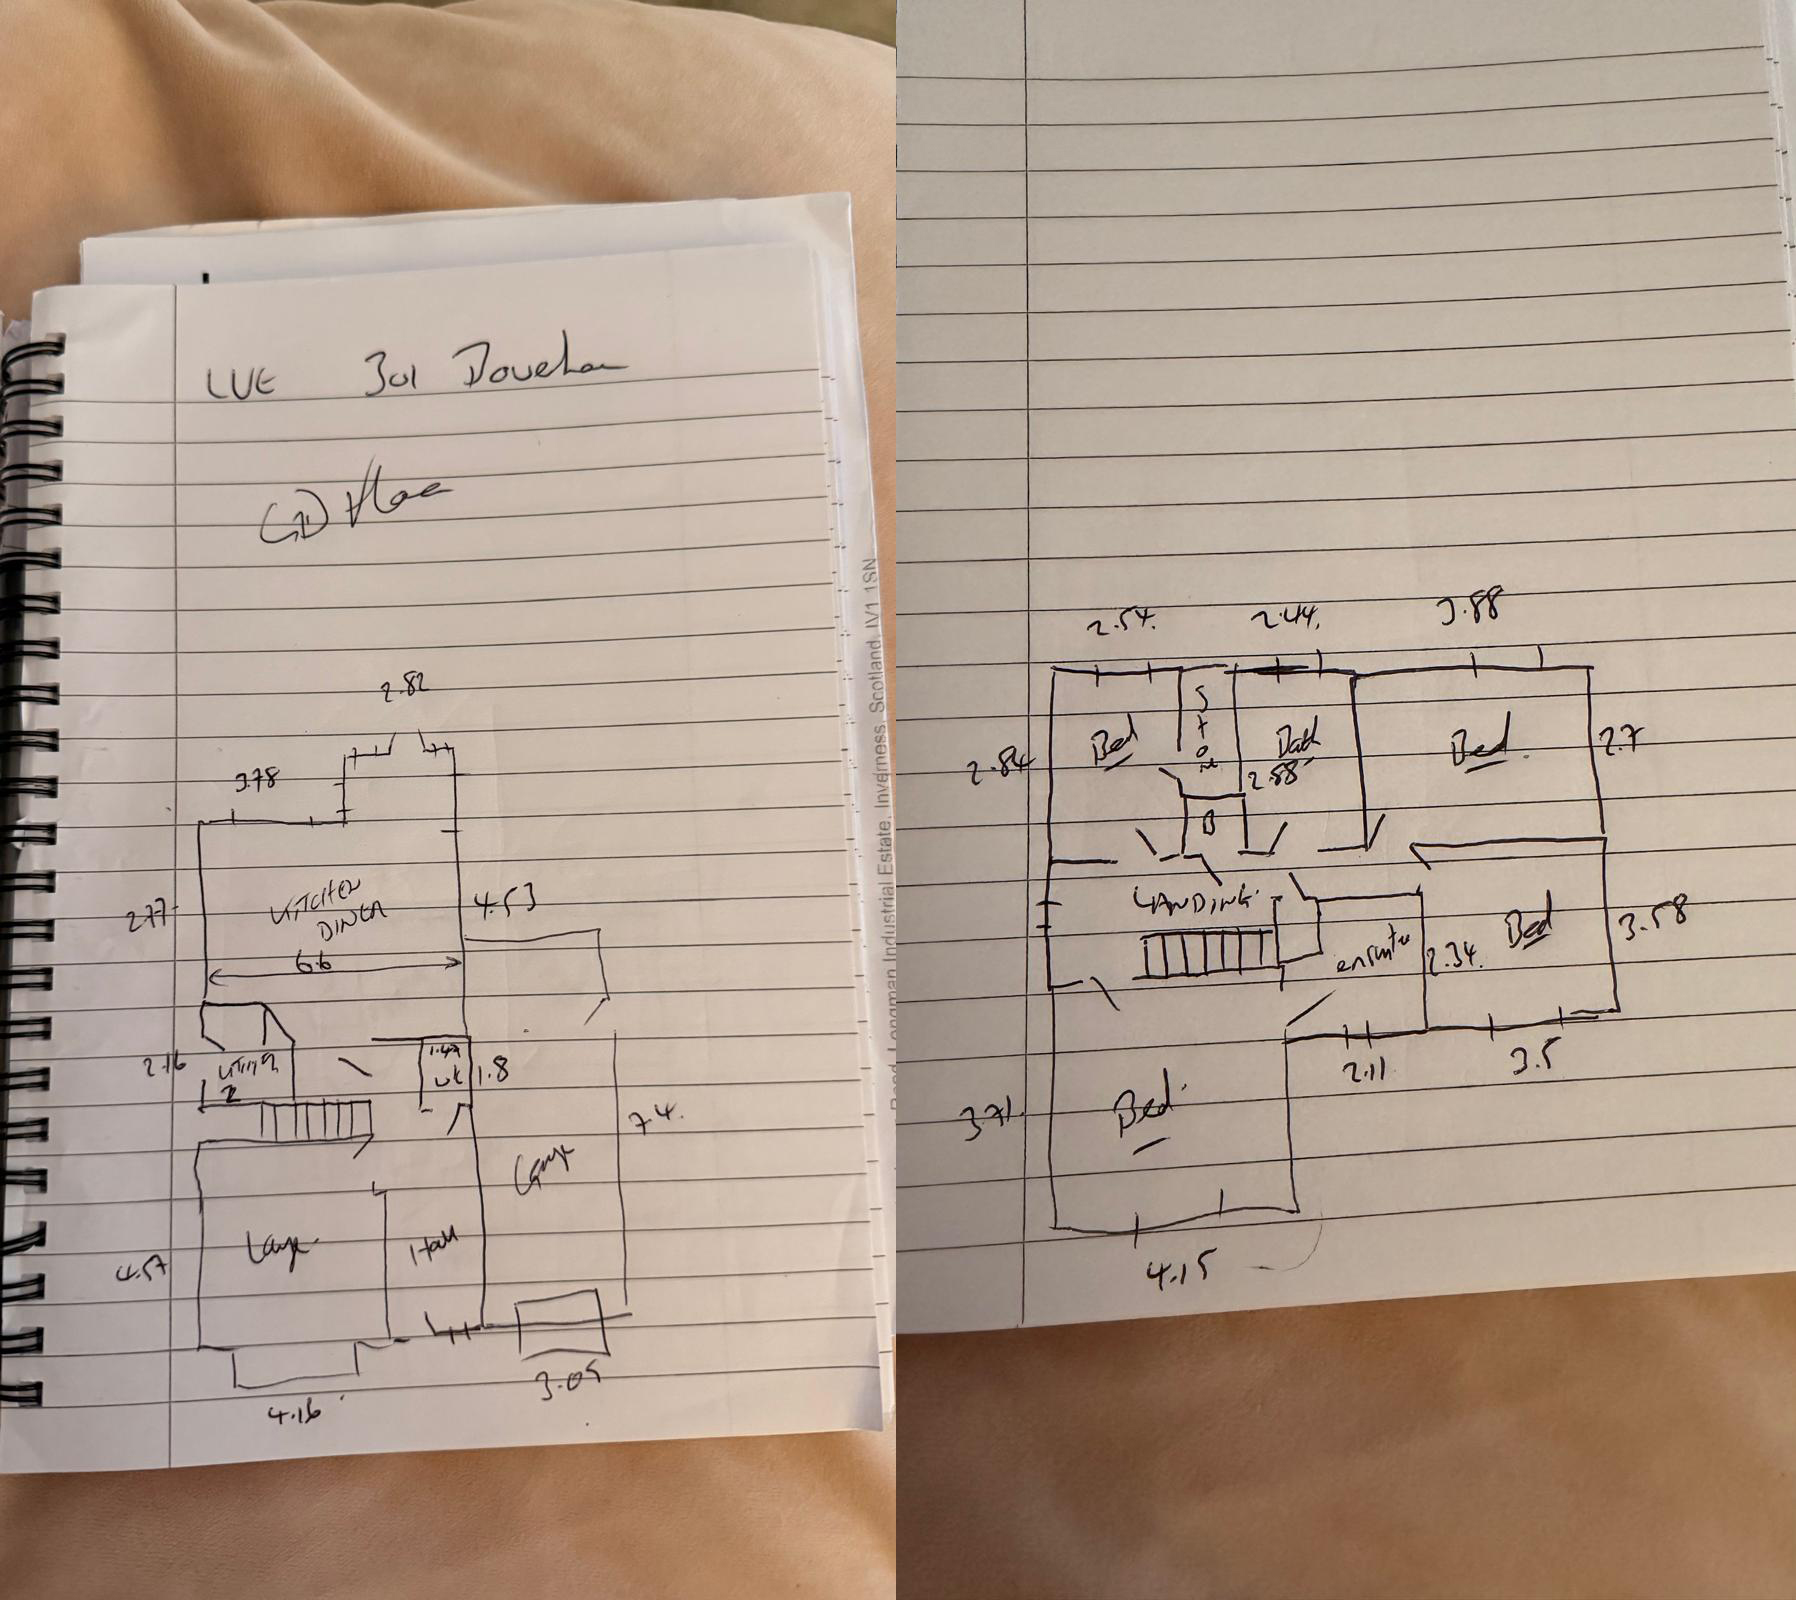 LUE 301
2.82
3.78
2.77
KITCHEN
DINER
4.53
6.6
2.16
2
1.8
7.4.
Hall
4.57
4.16
3.05
Road, Longman Industrial Estate, Inverness, Scotland. IV1 1SN
2.54.
2.44.
3.88
Bed
Store
Bath
Bed.
2.84
2.88
2.7
B
LANDING
ensuite
2.34.
Bed
3.58
2.11
3.5
Bed
3.71
4.15